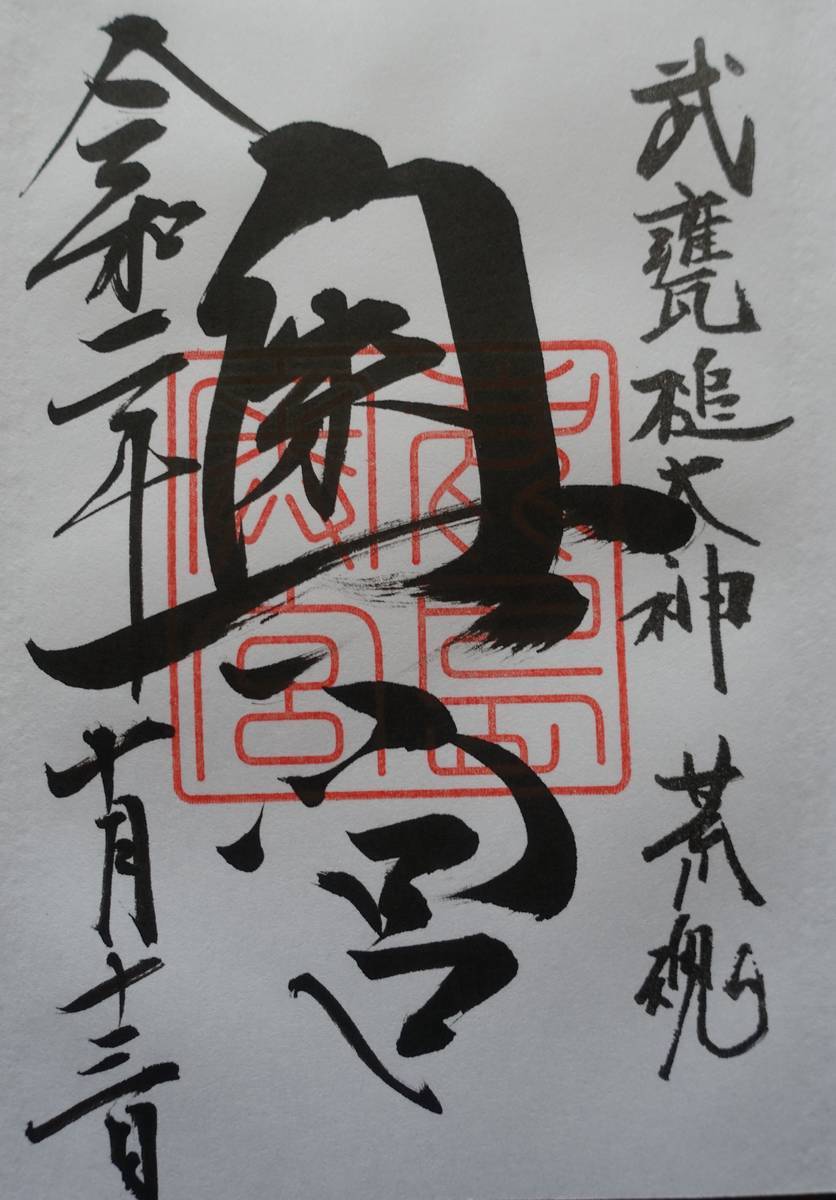 武甕槌大神 荒魂
奥宮
令和二年十月十三日